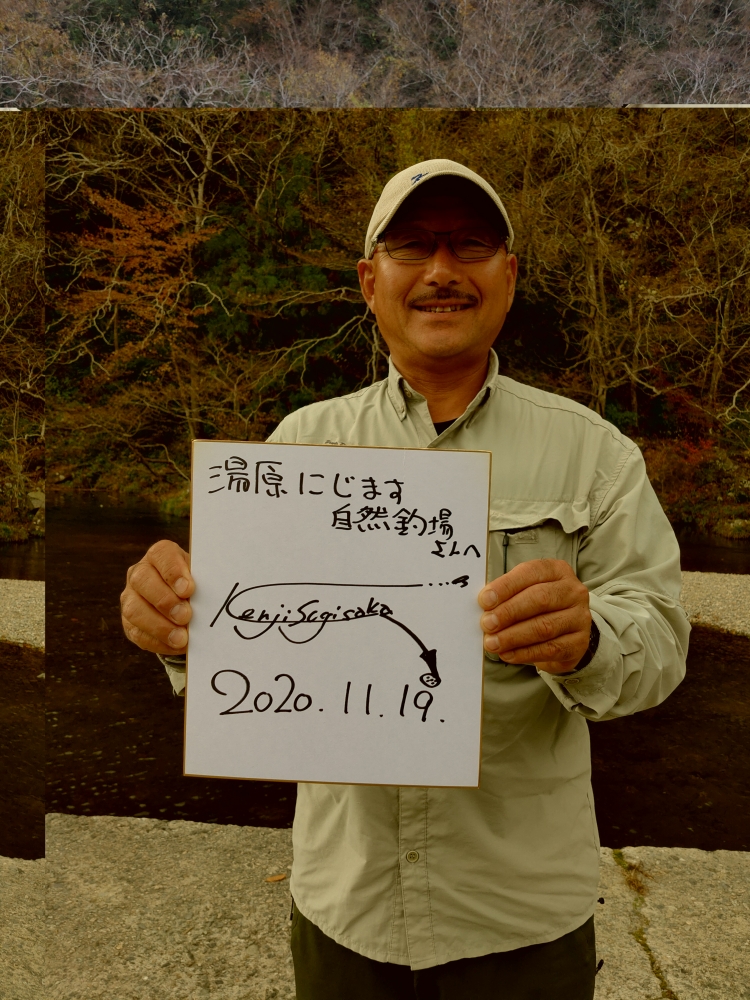 湯原にじます
自然釣場
さんへ
Kenji Sugisaka
2020.11.19.